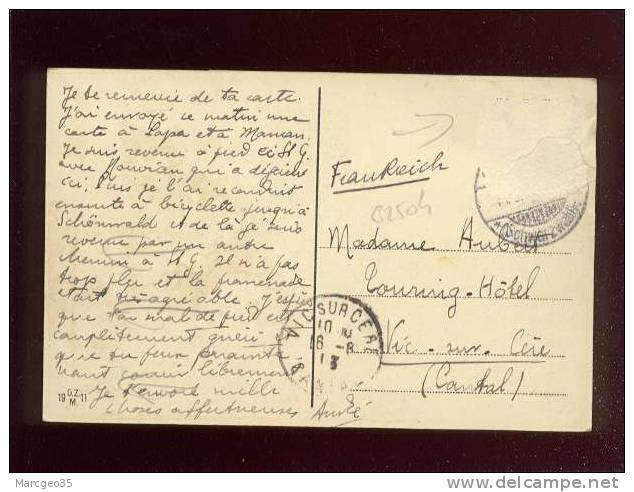 Je te remercie de ta carte.
J'ai envoyé ce matin une
carte à Papa et à Maman.
Je suis revenu à pied à St G.
avec Mouvian qui a déjeuné
ici. Puis je l'ai reconduit
ensuite à bicyclette jusqu'à
Schönwald et de là je suis
revenu par un autre
chemin à St G. Il n'a pas
trop plu et la promenade
était agréable. J'espère
que ton mal de pied est
complètement guéri
que tu peux
courir librement.
Je t'envoie mille
choses affectueuses André
19 O.Z.M. 11
Frankreich
G2504
Madame Aubert
Touring-Hôtel
Vic-sur-Cère
(Cantal)
(Schwarzwald)
VIC SUR CERE
10
16 - 8
13
Marcgeo35
www.delcampe.net